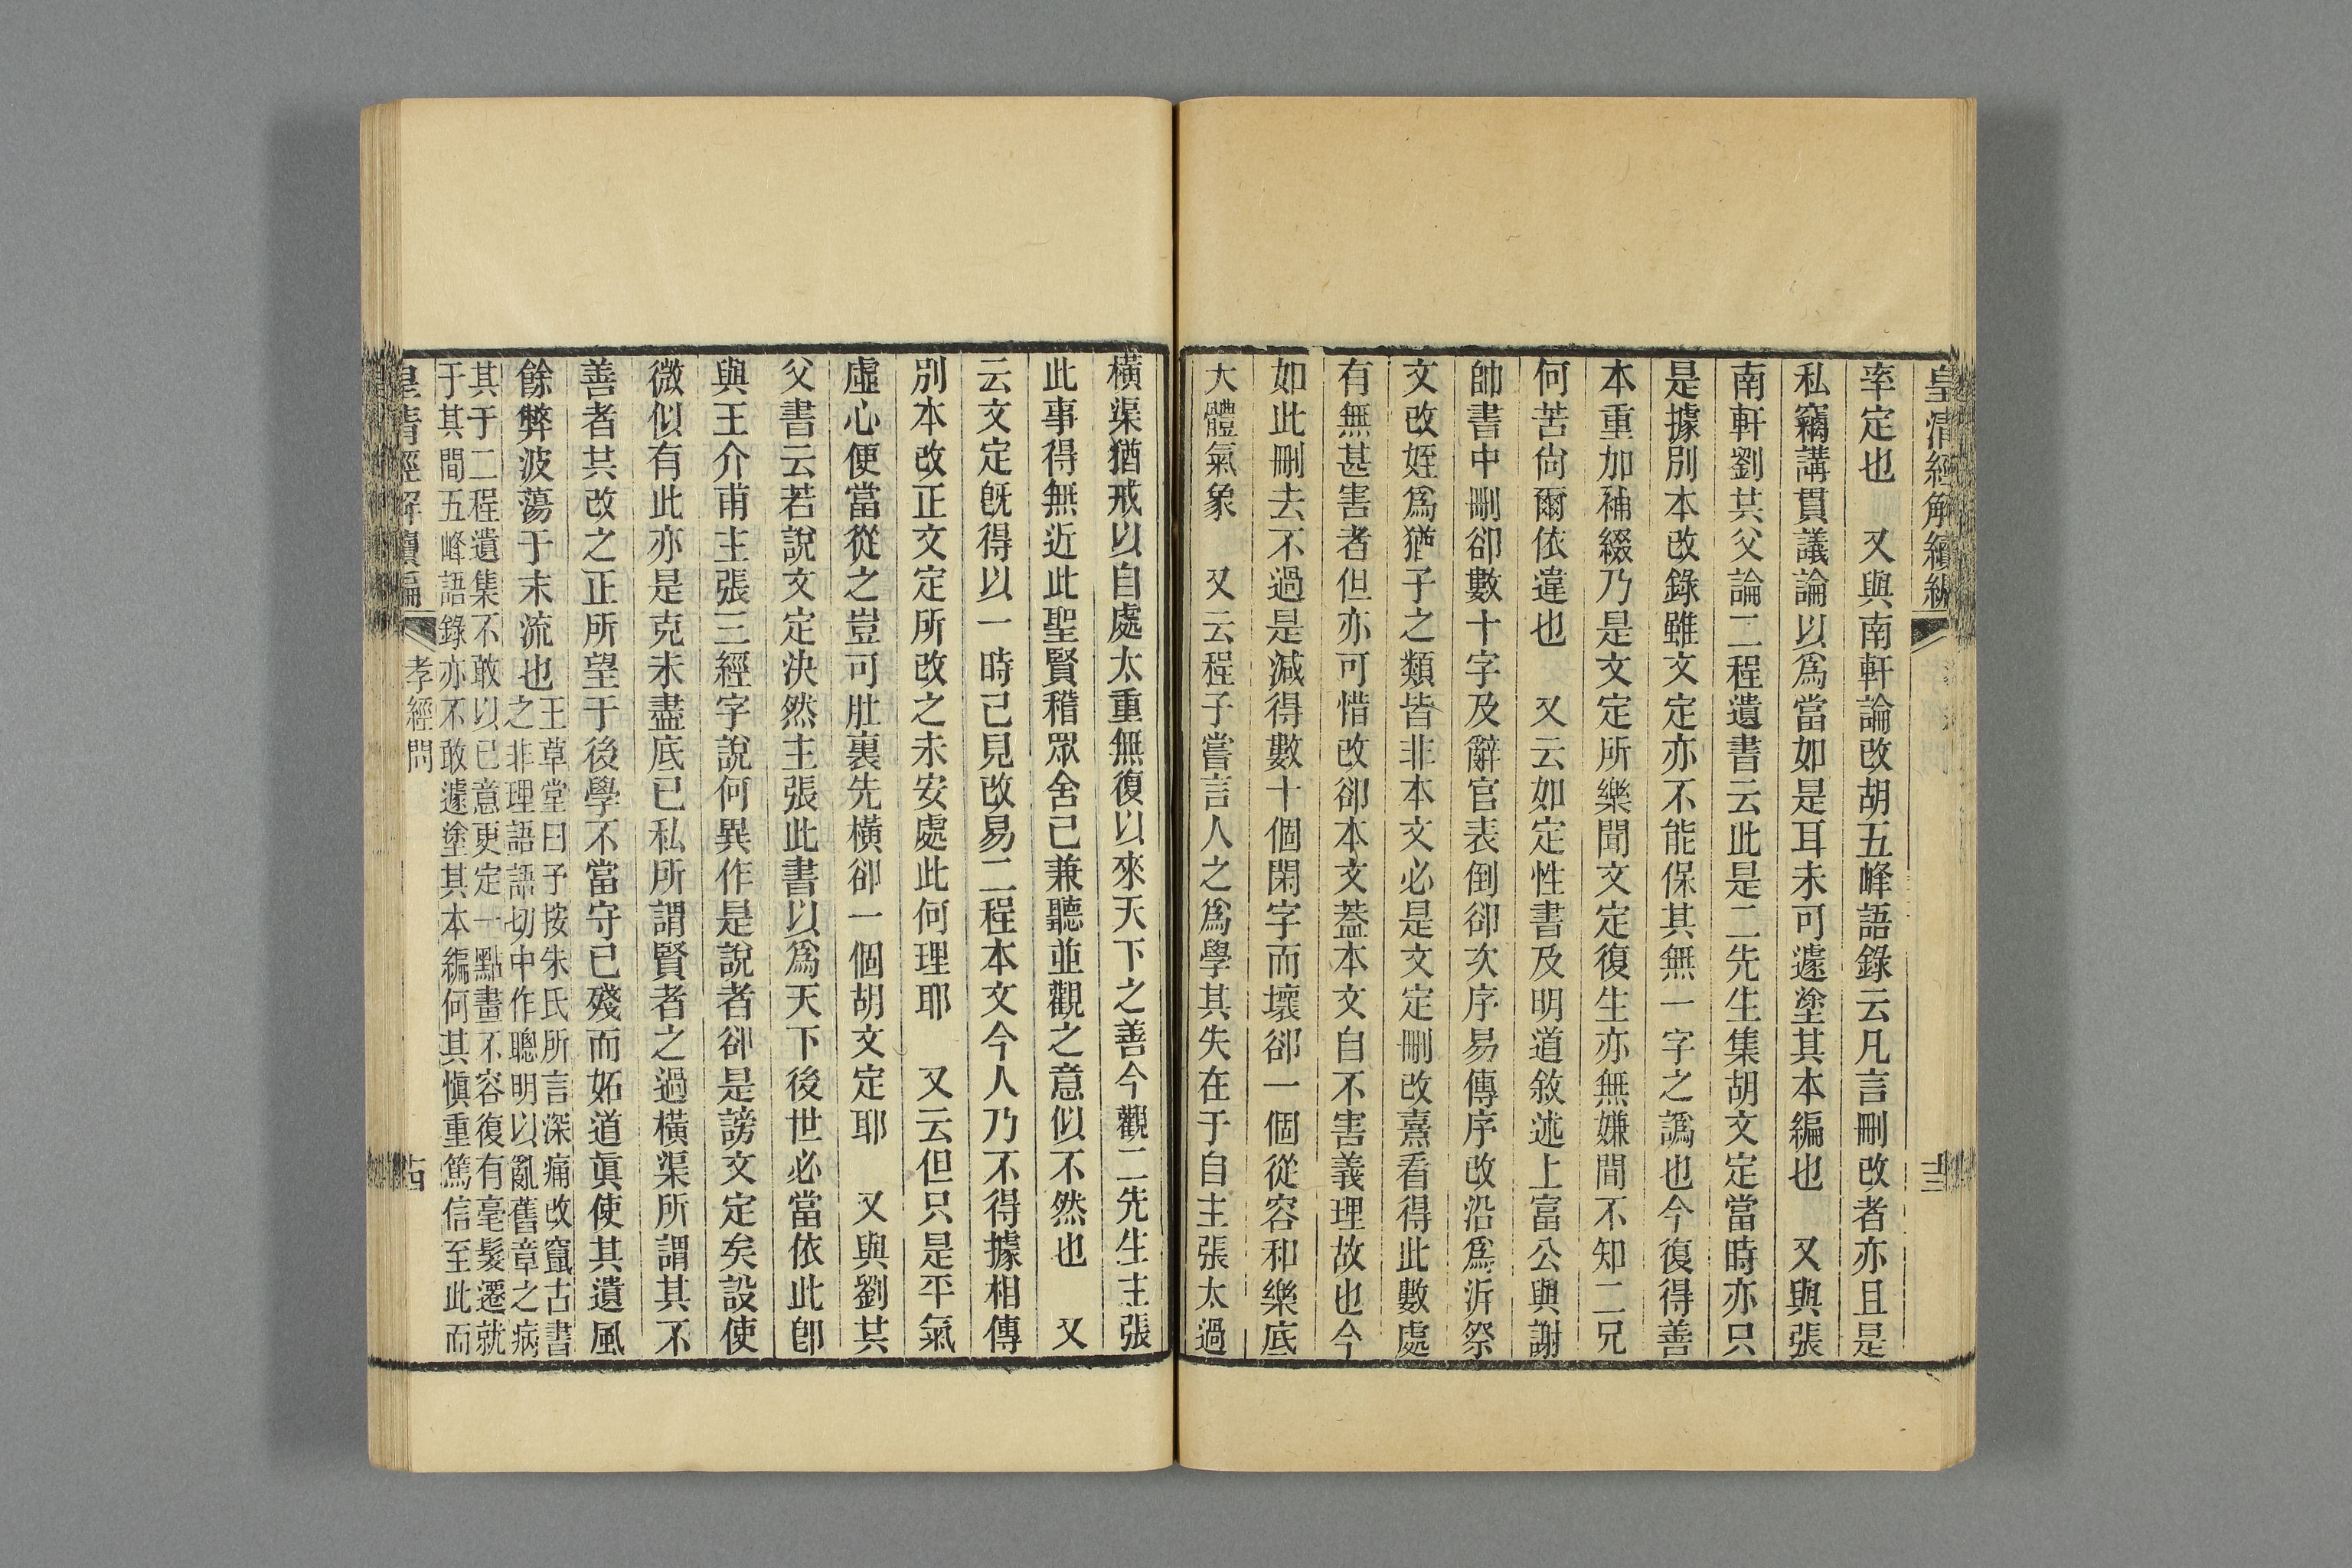 皇清經解續編
十三
率定也　又與南軒論改胡五峰語錄云凡言刪改者亦且是
私竊講貫議論以爲當如是耳未可遽塗其本編也　又與張
南軒劉其父論二程遺書云此是二先生集胡文定當時亦只
是據別本改錄雖文定亦不能保其無一字之譌也今復得善
本重加補綴乃是文定所樂聞文定復生亦無嫌間不知二兄
何苦尙爾依違也　又云如定性書及明道敘述上富公與謝
帥書中刪卻數十字及辭官表倒卻次序易傳序改沿爲泝祭
文改姪爲猶子之類皆非本文必是文定刪改熹看得此數處
有無甚害者但亦可惜改卻本文葢本文自不害義理故也今
如此刪去不過是減得數十個閑字而壞卻一個從容和樂底
大體氣象　又云程子嘗言人之爲學其失在于自主張太過
橫渠猶戒以自處太重無復以來天下之善今觀二先生主張
此事得無近此聖賢稽眾舍己兼聽並觀之意似不然也　又
云文定旣得以一時己見改易二程本文今人乃不得據相傳
別本改正文定所改之未安處此何理耶　又云但只是平氣
虛心便當從之豈可肚裏先橫卻一個胡文定耶　又與劉其
父書云若說文定決然主張此書以爲天下後世必當依此卽
與王介甫主張三經字說何異作是說者卻是謗文定矣設使
微似有此亦是克未盡底已私所謂賢者之過橫渠所謂其不
善者其改之正所望于後學不當守已殘而妬道眞使其遺風
餘弊波蕩于末流也
王草堂曰予按朱氏所言深痛改竄古書
之非理語語切中作聰明以亂舊章之病
其于二程遺集不敢以已意更定一點畫不容復有毫髮遷就
于其間五峰語錄亦不敢遽塗其本編何其愼重篤信至此而
皇清經解續編
孝經問
十四